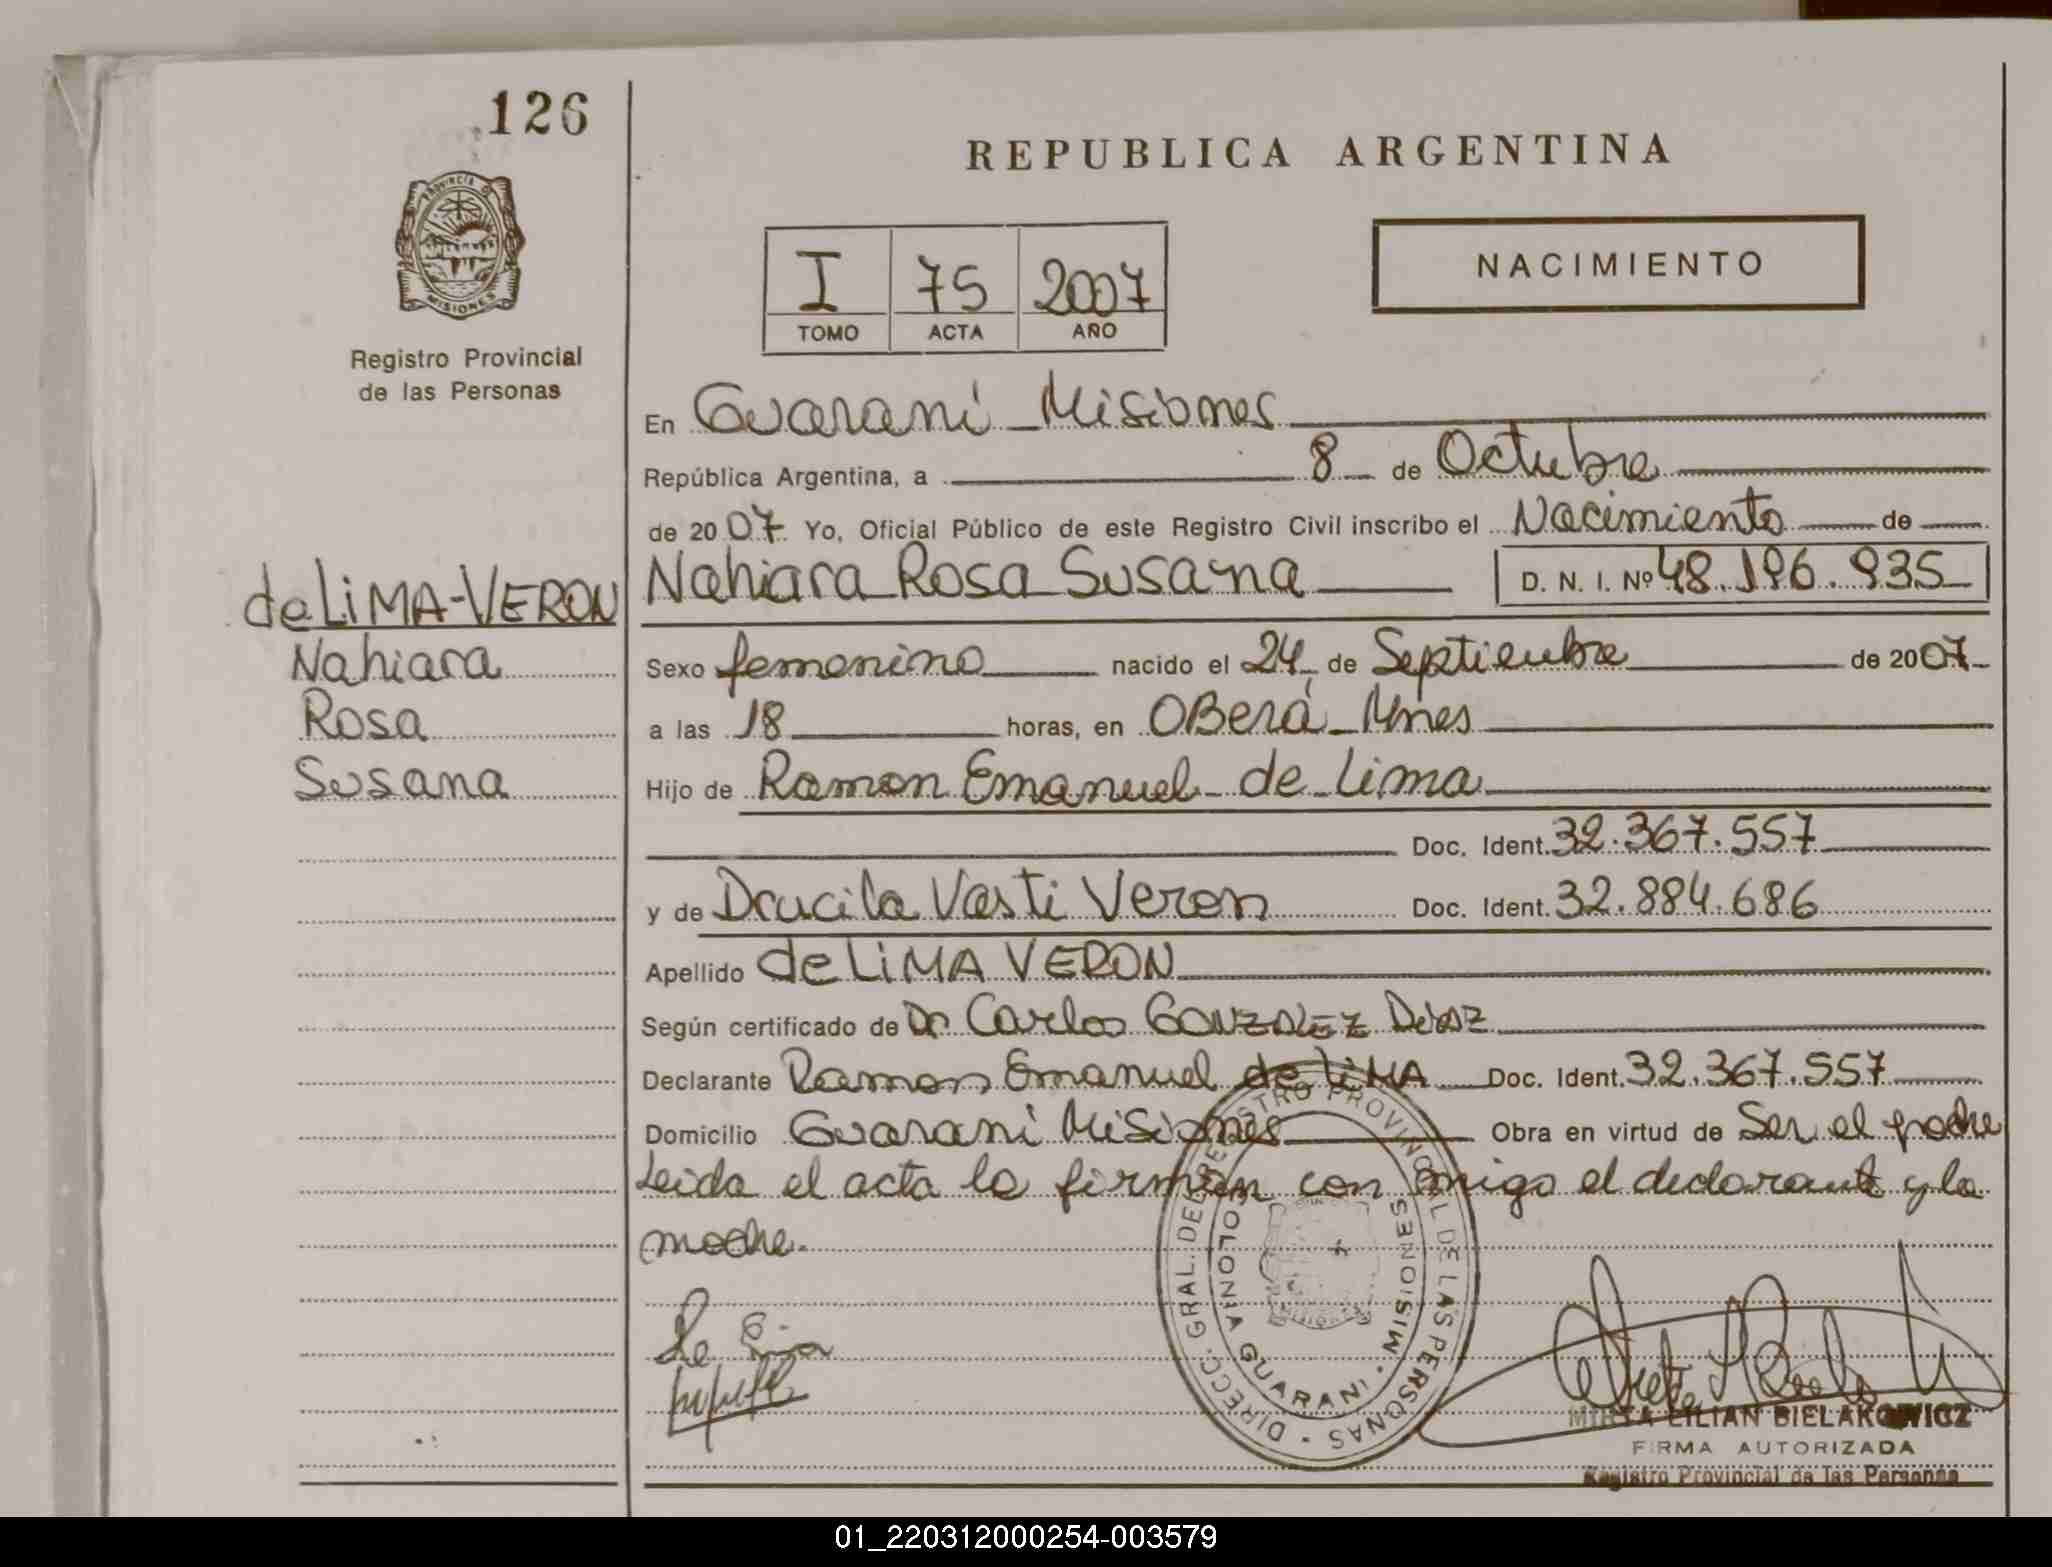 126
PROVINCIA DE
MISIONES
Registro Provincial
de las Personas
REPUBLICA ARGENTINA
I 75 2007
TOMO ACTA AÑO
NACIMIENTO
En Guaraní Misiones
República Argentina, a 8 de Octubre
de 2007 Yo, Oficial Público de este Registro Civil inscribo el Nacimiento de
de LiMA-VERON
Nahiara
Rosa
Susana
Nahiara Rosa Susana D. N. I. Nº 48.196.935
Sexo femenino nacido el 24 de Septiembre de 2007
a las 18 horas, en OBerá Mnes
Hijo de Ramon Emanuel de Lima
Doc. Ident. 32.367.557
y de Drucila Vasti Veron Doc. Ident. 32.884.686
Apellido de LiMA VERON
Según certificado de Dr Carlos GONZALEZ DiAZ
Declarante Ramon Emanuel de LiMA Doc. Ident. 32.367.557
Domicilio Guaraní Misiones Obra en virtud de Ser el padre
Leida el acta la firman con migo el declarante y la
madre.
DIRECC. GRAL. DEL REGISTRO PROVINCIAL DE LAS PERSONAS
COLONIA GUARANI · MISIONES
MIRTA LILIAN BIELAKOWICZ
FIRMA AUTORIZADA
Registro Provincial de las Personas
01_220312000254-003579